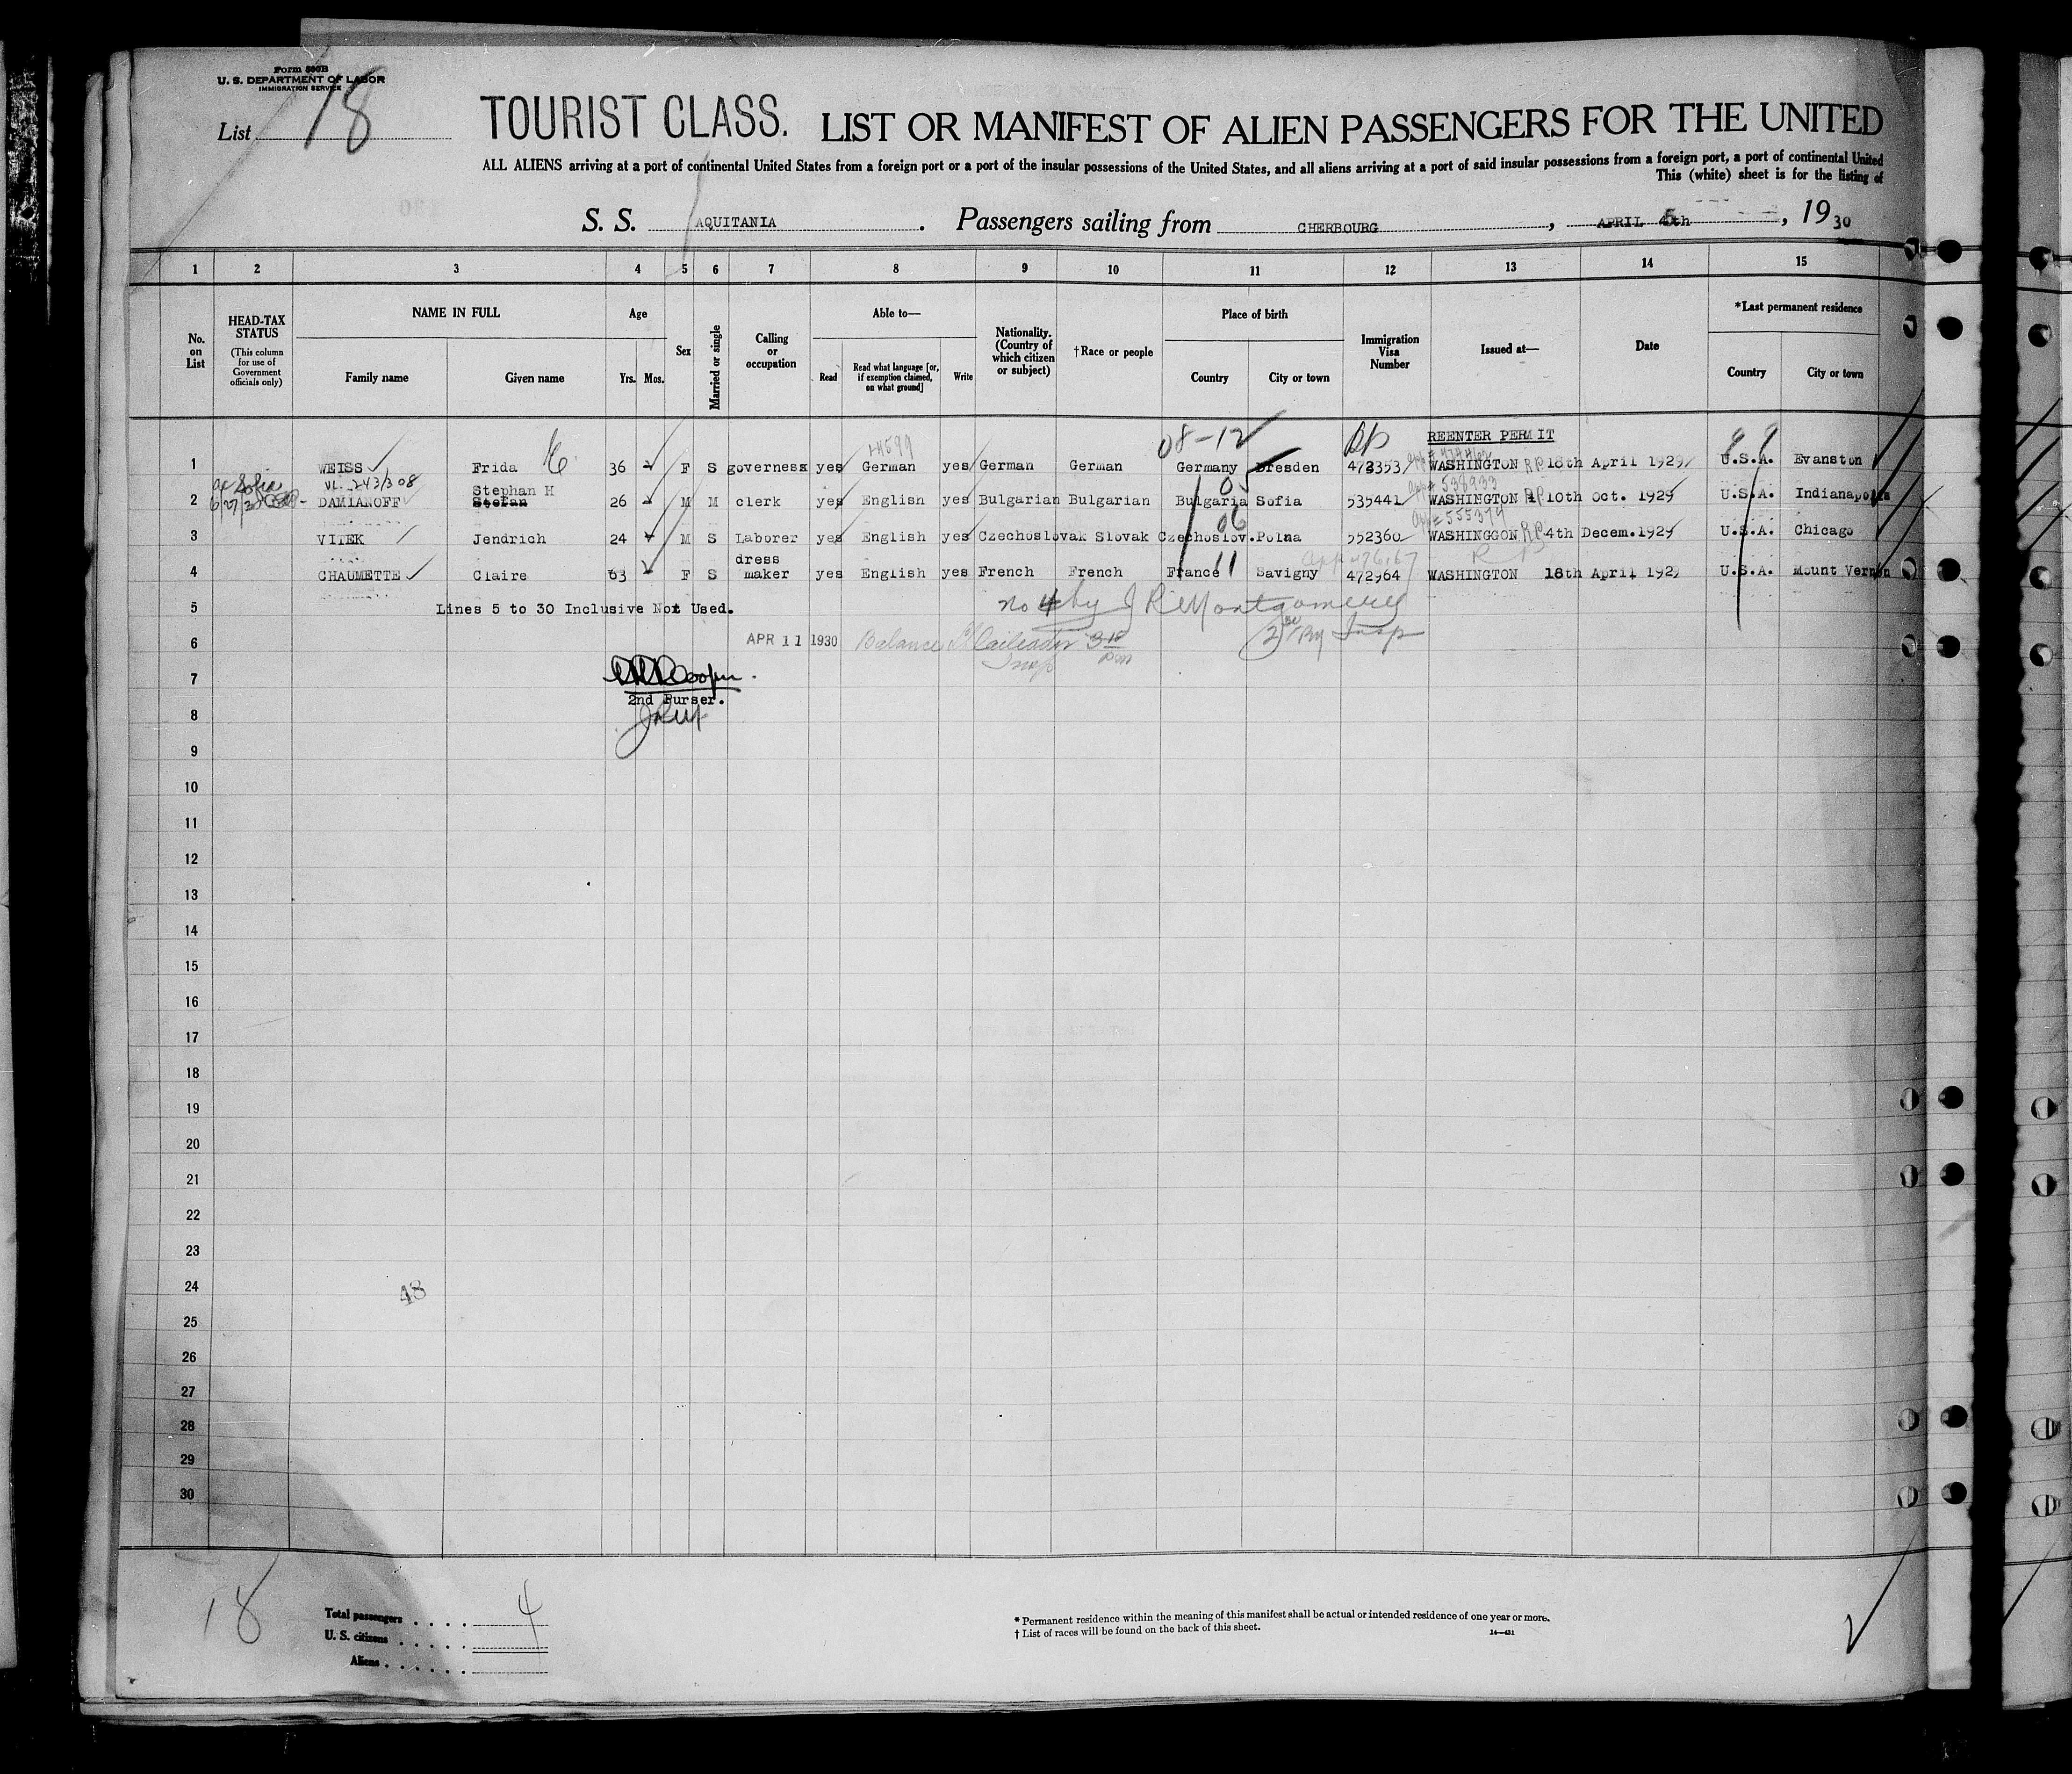 Form 500B
U. S. DEPARTMENT OF LABOR
IMMIGRATION SERVICE
List 18
TOURIST CLASS. LIST OR MANIFEST OF ALIEN PASSENGERS FOR THE UNITED
ALL ALIENS arriving at a port of continental United States from a foreign port or a port of the insular possessions of the United States, and all aliens arriving at a port of said insular possessions from a foreign port, a port of continental United
This (white) sheet is for the listing of
S. S. AQUITANIA . Passengers sailing from CHERBOURG , APRIL 5th , 1930
1 2 3 4 5 6 7 8 9 10 11 12 13 14 15
No. on List
HEAD-TAX STATUS (This column for use of Government officials only)
NAME IN FULL
Family name Given name
Age
Yrs. Mos.
Sex
Married or single
Calling or occupation
Able to—
Read Read what language [or, if exemption claimed, on what ground] Write
Nationality. (Country of which citizen or subject)
†Race or people
Place of birth
Country City or town
Immigration Visa Number
Issued at—
Date
*Last permanent residence
Country City or town
08-12
REENTER PERMIT
1 WEISS Frida 36 F S governess yes German yes German German Germany Dresden 472353 WASHINGTON RP 18th April 1929 U.S.A. Evanston
VL 243/308 Stephan H 05 App# 538933
2 DAMIANOFF Stefan 26 M M clerk yes English yes Bulgarian Bulgarian Bulgaria Sofia 535441 WASHINGTON RP 10th Oct. 1929 U.S.A. Indianapolis
06 App# 555374
3 VITEK Jendrich 24 M S Laborer yes English yes Czechoslovak Slovak Czechoslov. Polna 552360 WASHINGGON RP 4th Decem. 1929 U.S.A. Chicago
4 CHAUMETTE Claire 63 F S dress maker yes English yes French French France 11 Savigny 472964 WASHINGTON 18th April 1929 U.S.A. Mount Vernon
5 Lines 5 to 30 Inclusive Not Used. No 4 by J R Montgomery
6 APR 11 1930 Balance Insp
7
2nd Purser.
8 JRM
9
10
11
12
13
14
15
16
17
18
19
20
21
22
23
24
48
25
26
27
28
29
30
18
Total passengers . . . . 4
U. S. citizens . . . . .
Aliens . . . . . .
* Permanent residence within the meaning of this manifest shall be actual or intended residence of one year or more.
† List of races will be found on the back of this sheet.
14—431